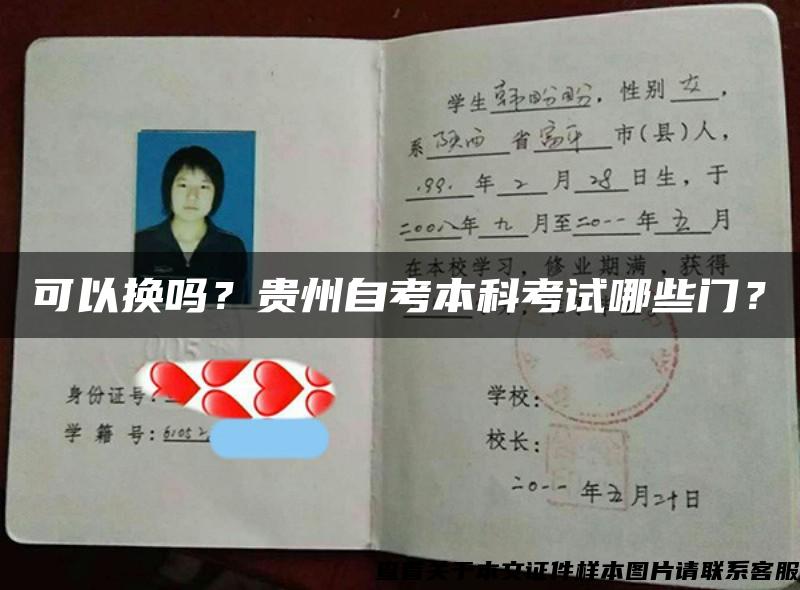 学生韩盼盼，性别女，
系陕西省富平市(县)人，
1991年2月28日生，于
二〇〇八年九月至二〇一一年五月
在本校学习，修业期满，获得
可以换吗？贵州自考本科考试哪些门？
身份证号：
学籍号：61052
学校：
校长：
二〇一一年五月二十日
查看关于本文证件样本图片请联系客服